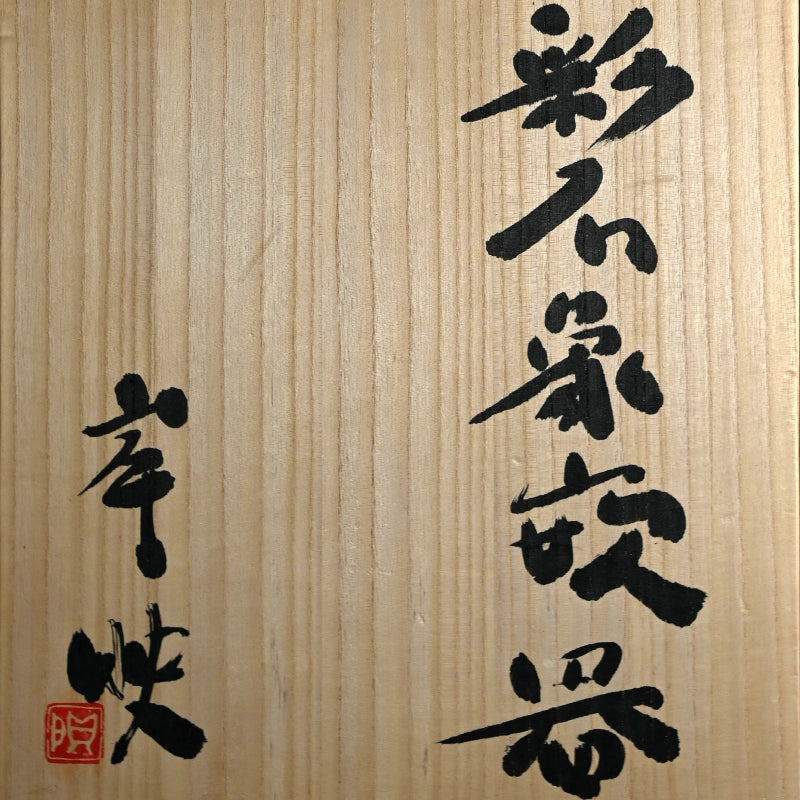 彩石象嵌器
岸映